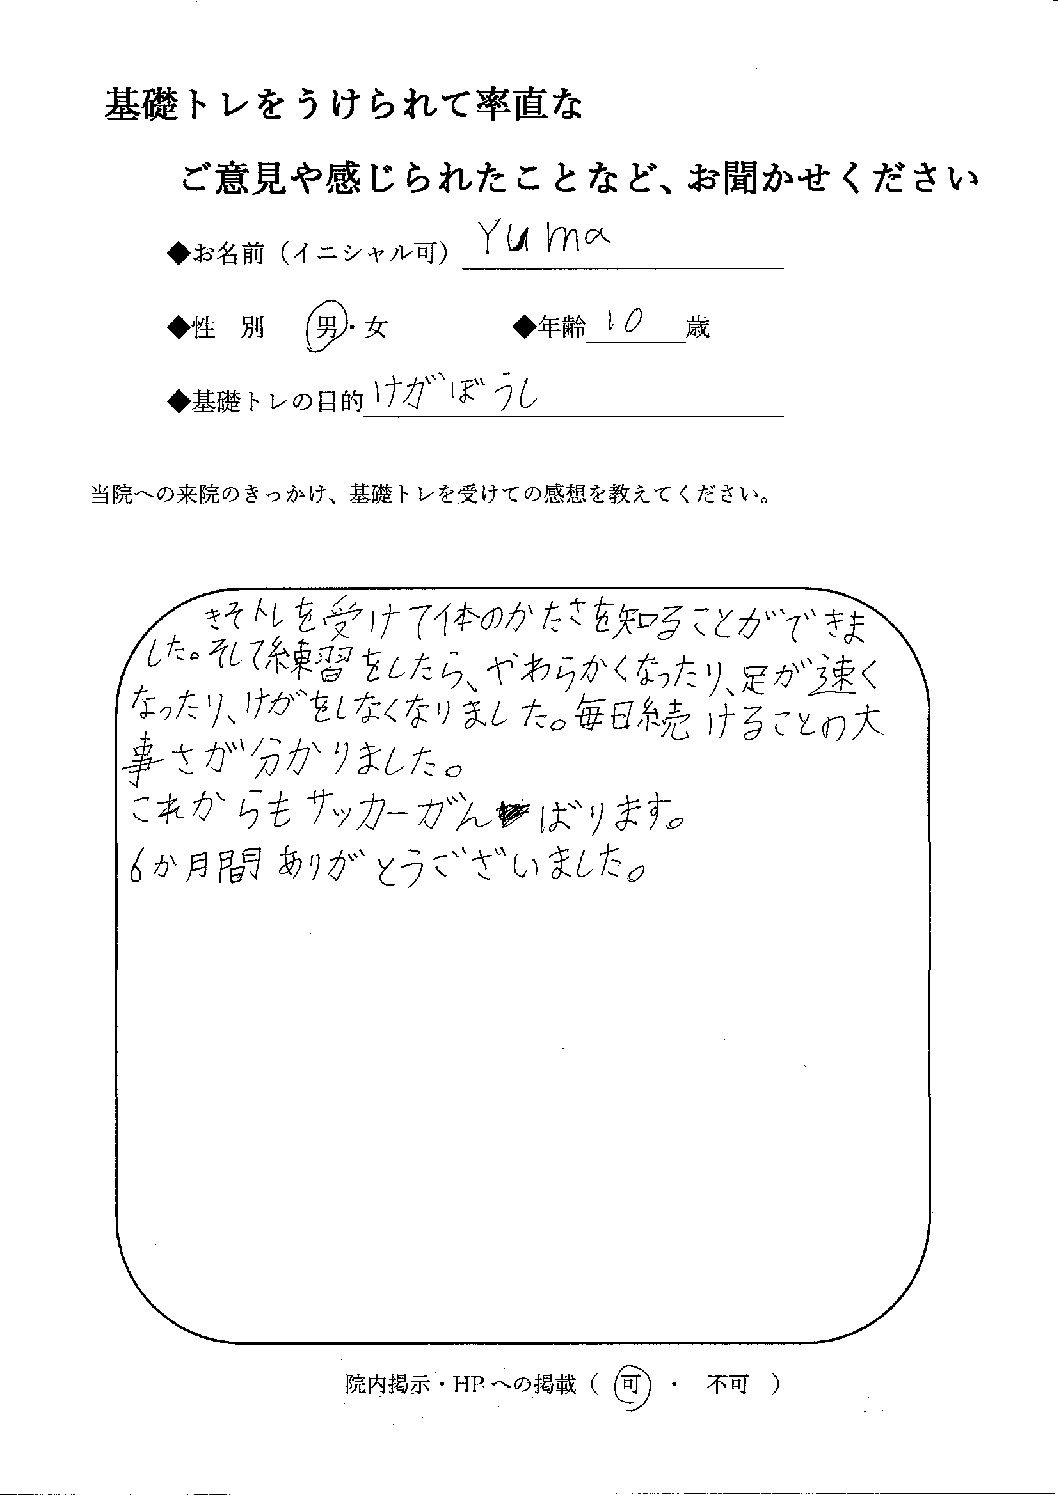 基礎トレをうけられて率直な
ご意見や感じられたことなど、お聞かせください
◆お名前（イニシャル可） Yuma
◆性 別 男・女 ◆年齢 10 歳
◆基礎トレの目的 けがぼうし
当院への来院のきっかけ、基礎トレを受けての感想を教えてください。
きそトレを受けて体のかたさを知ることができま
した。そして練習をしたら、やわらかくなったり、足が速く
なったり、けがをしなくなりました。毎日続けることの大
事さが分かりました。
これからもサッカーがんばります。
6か月間ありがとうございました。
院内掲示・HPへの掲載（ 可 ・ 不可 ）